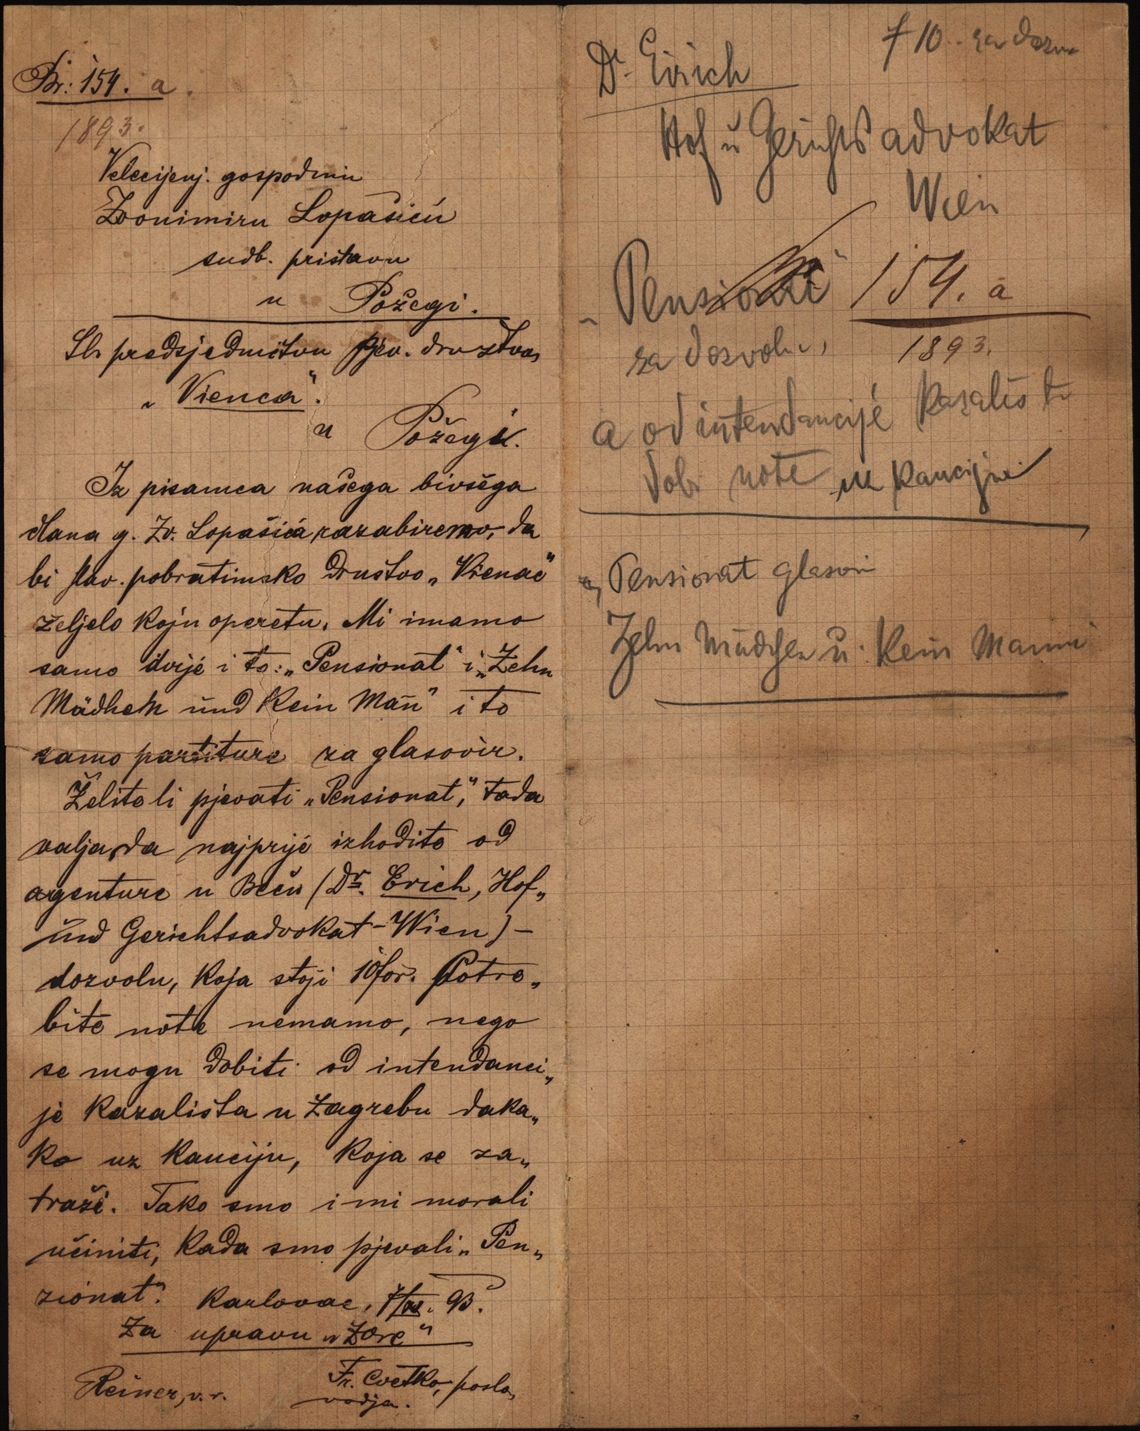 Br: 154. a.
1893.
Velecijenj. gospodinu
Zvonimiru Lopašiću
sudb. pristavu
u Požegi.
Sl. predsjedničtvu pjev. družtva
„Vienca".
u Požegi.
Iz pisamca našega bivšega
člana g. Zv. Lopašića, razabiremo, da
bi slav. pobratimsko družtvo „Vienac"
željelo koju operetu. Mi imamo
samo dvije i to: „Pensionat" i „Zehn
Mädhen und kein Mañ" i to
samo partiture za glasovir.
Želite li pjevati „Pensionat", tada
valja, da najprije izhodite od
agenture u Beču (Dr. Erich, Hof-
und Gerichtsadvokat - Wien) -
dozvolu, koja stoji 10 for. Potre„
bite note nemamo, nego
se mogu dobiti od intendanci„
je kazališta u Zagrebu daka„
ko uz kauciju, koja se za„
traži. Tako smo i mi morali
učiniti, kada smo pjevali „Pen„
zionat". Karlovac, 93.
Za upravu „Zore"
Reiner, v. r. Fr. Cvetko, poslo„
vodja.
f 10 - za dozv
Dr. Erich
Hof u Gerichts advokat
Wien
„Pensionat" 154. a
za dozvolu, 1893.
a od intendancije kazališta
dobi note uz kauciju
Pensionat glasovir
Zehn Mädchen u. kein Mann